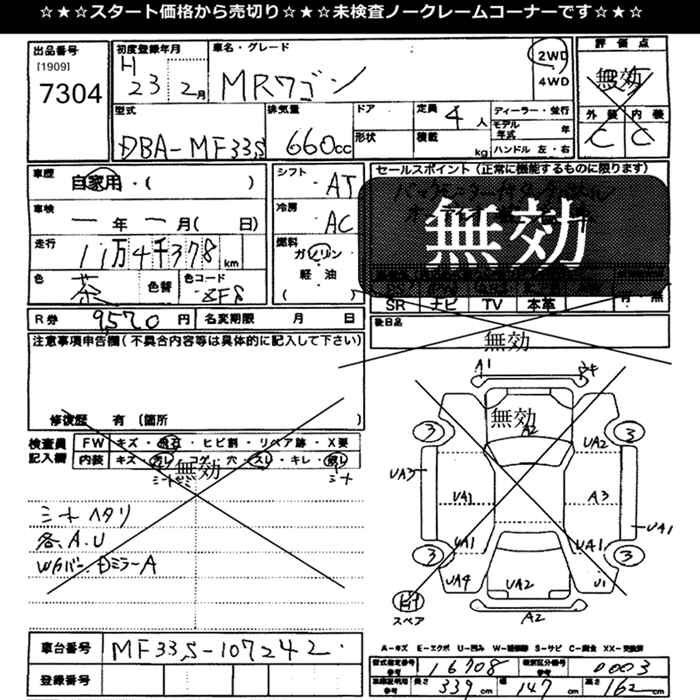 ☆★☆★スタート価格から売切り☆★☆★未検査ノークレームコーナーです☆★☆
出品番号
[1909]
7304
初度登録年月
H 23 2月
車名・グレード
MRワゴン
2WD
4WD
評価点
無効
外装 内装
C C
型式
DBA-MF33S
排気量
660cc
ドア
形状
定員 4人
積載 kg
ディーラー・並行
モデル年式 年
ハンドル 左・右
車歴
自家用・( )
車検
一年一月( 日)
走行
11万4千378km
色 茶 色替
色コード 8F8
シフト AT
冷房 AC
燃料
ガソリン
軽油
( )
セールスポイント(正常に機能するものに限ります)
無効
SR ナビ TV 本革 有・無
R券 9570円
名変期限 月 日
後日品
無効
注意事項申告欄(不具合内容等は具体的に記入して下さい)
修復歴 有(箇所
検査員記入欄
FW キズ・飛石・ヒビ割・リペア跡・X要
内装 キズ・汚レ・コゲ・穴・スレ・キレ
無効
シート ヘタリ
各、A.U
車台番号 MF33S-107242
登録番号
A1
無効
A2
3
UA2
3
UA3
UA1
A3
UA1
UA1
UA1
3
3
UA4
UA2
U1
スペア
A2
A-キズ E-エクボ U-凹み W-補修跡 S-サビ C-腐食 XX-交換済
型式指定番号 参考 16708
類別区分番号 参考 0003
長さ 339cm 幅 147cm 高さ 162cm